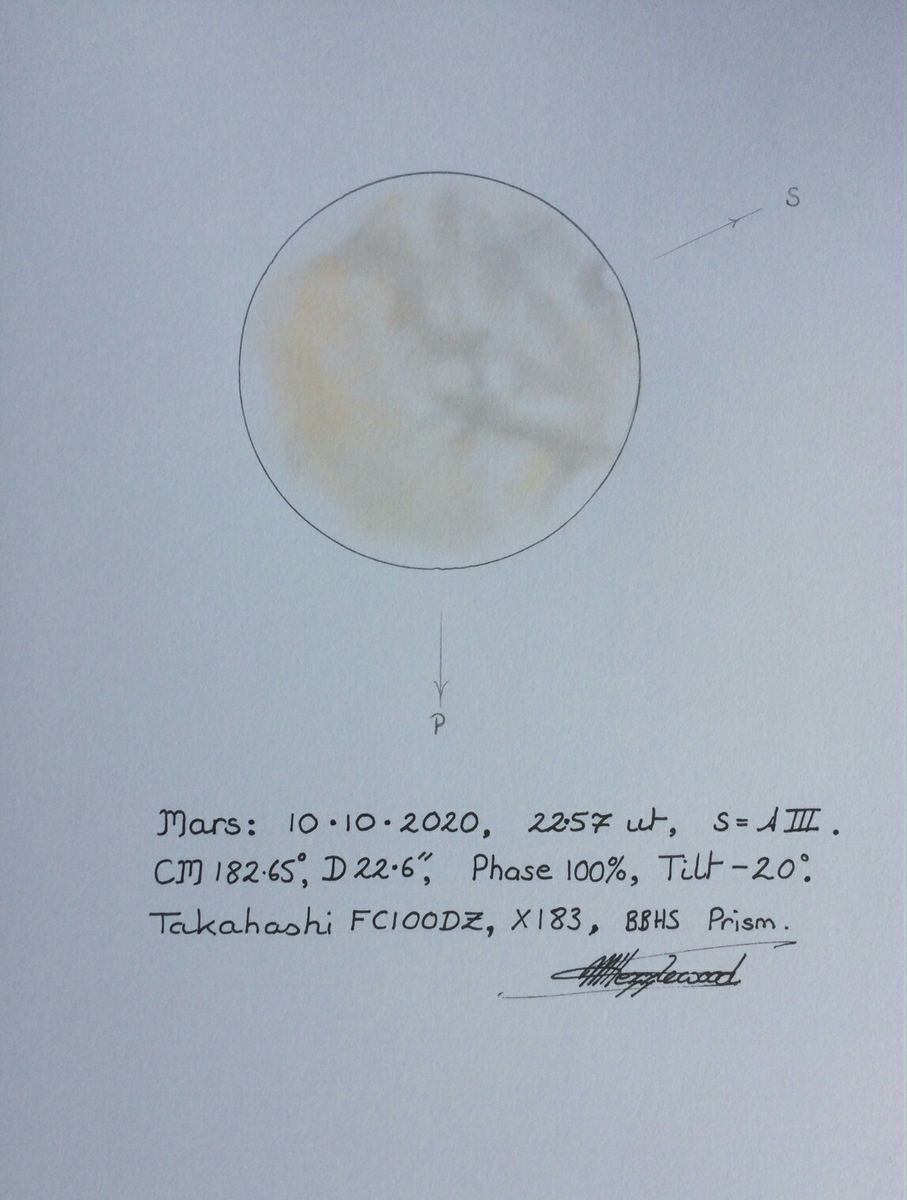 S
P
Mars: 10·10·2020, 22·57 ut, S = A III.
CM 182·65°, D 22·6", Phase 100%, Tilt -20°.
Takahashi FC100DZ, X183, BBHS Prism.